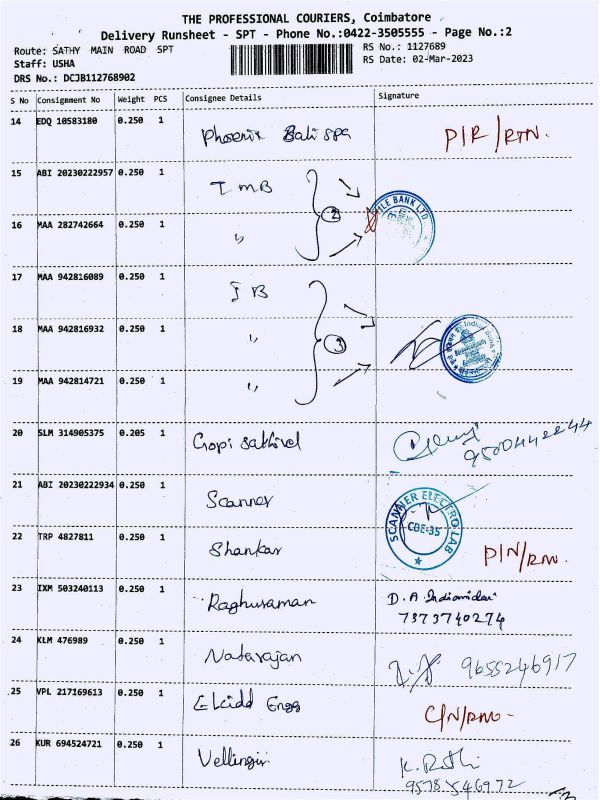 THE PROFESSIONAL COURIERS, Coimbatore
Delivery Runsheet - SPT - Phone No.:0422-3505555 - Page No.:2
Route: SATHY MAIN ROAD SPT
RS No.: 1127689
Staff: USHA
RS Date: 02-Mar-2023
DRS No.: DCJB112768902
S No Consignment No Weight PCS Consignee Details Signature
14 EDQ 10583180 0.250 1 Phoenix Bali spa P/R/RTN.
15 ABI 20230222957 0.250 1 T MB
2
ILE BANK LTD
16 MAA 282742664 0.250 1 "
17 MAA 942816089 0.250 1 I B
18 MAA 942816932 0.250 1 "
3
Indian Bank
19 MAA 942814721 0.250 1 "
20 SLM 314905375 0.205 1 Gopi sakthivel
21 ABI 20230222934 0.250 1 Scanner
SCANNER ELECTRO LAB
CBE-35
22 TRP 4827811 0.250 1 Shankar
23 IXM 503240113 0.250 1 Raghuraman D. A.
7373740274
24 KLM 476989 0.250 1 Natarajan 9655246917
25 VPL 217169613 0.250 1 Elcidd Engg
26 KUR 694524721 0.250 1 Vellingiri K.